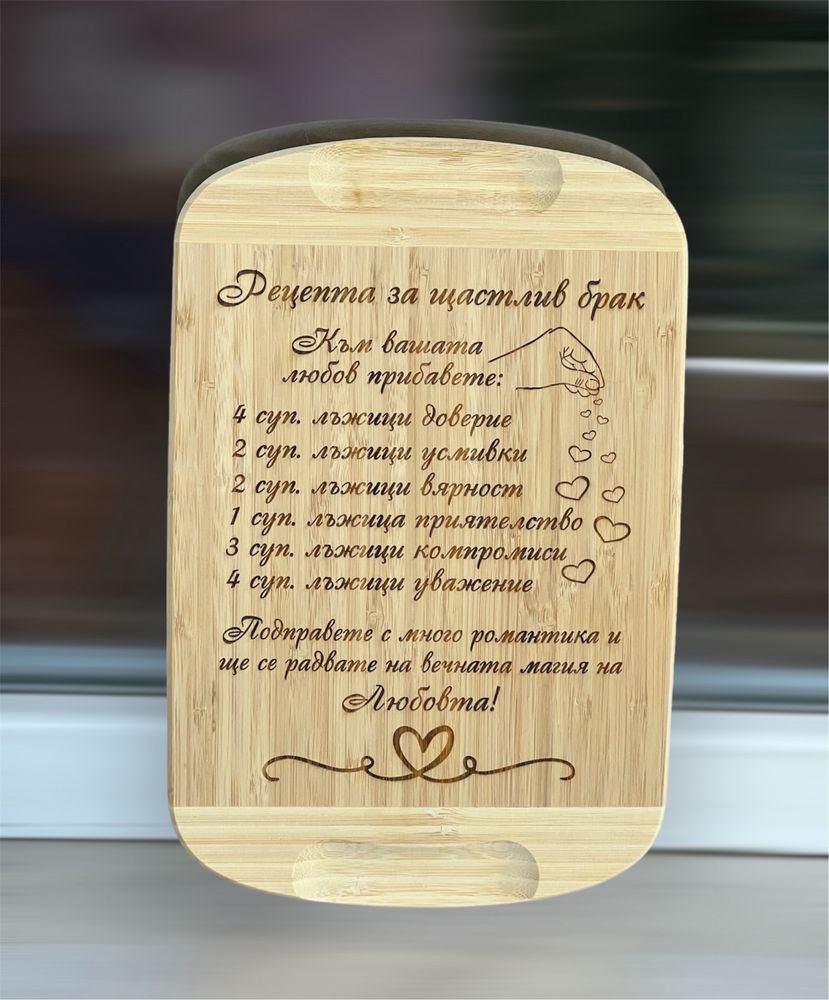 Рецепта за щастлив брак
Към вашата
любов прибавете:
4 суп. лъжици доверие
2 суп. лъжици усмивки
2 суп. лъжици вярност
1 суп. лъжица приятелство
3 суп. лъжици компромиси
4 суп. лъжици уважение
Подправете с много романтика и
ще се радвате на вечната магия на
Любовта!